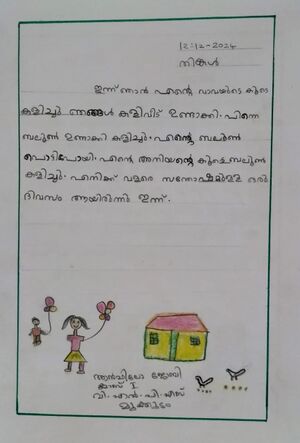 12-12-2024
തിങ്കൾ
ഇന്ന് ഞാൻ എന്റെ വാവയുടെ കൂടെ
കളിച്ചു ഞങ്ങൾ കളിവീട് ഉണ്ടാക്കി. പിന്നെ
ബലൂൺ ഉണ്ടാക്കി കളിച്ചു. എന്റെ ബലൂൺ
പൊട്ടിപോയി. എന്റെ അനിയന്റെ കൂടെ ബലൂൺ
കളിച്ചു. എനിക്ക് വളരെ സന്തോഷമുള്ള ഒരു
ദിവസം ആയിരുന്നു ഇന്ന്.
ജോബി
ക്ലാസ് I
വി. എൻ. പി. എസ്
മുക്കുടം